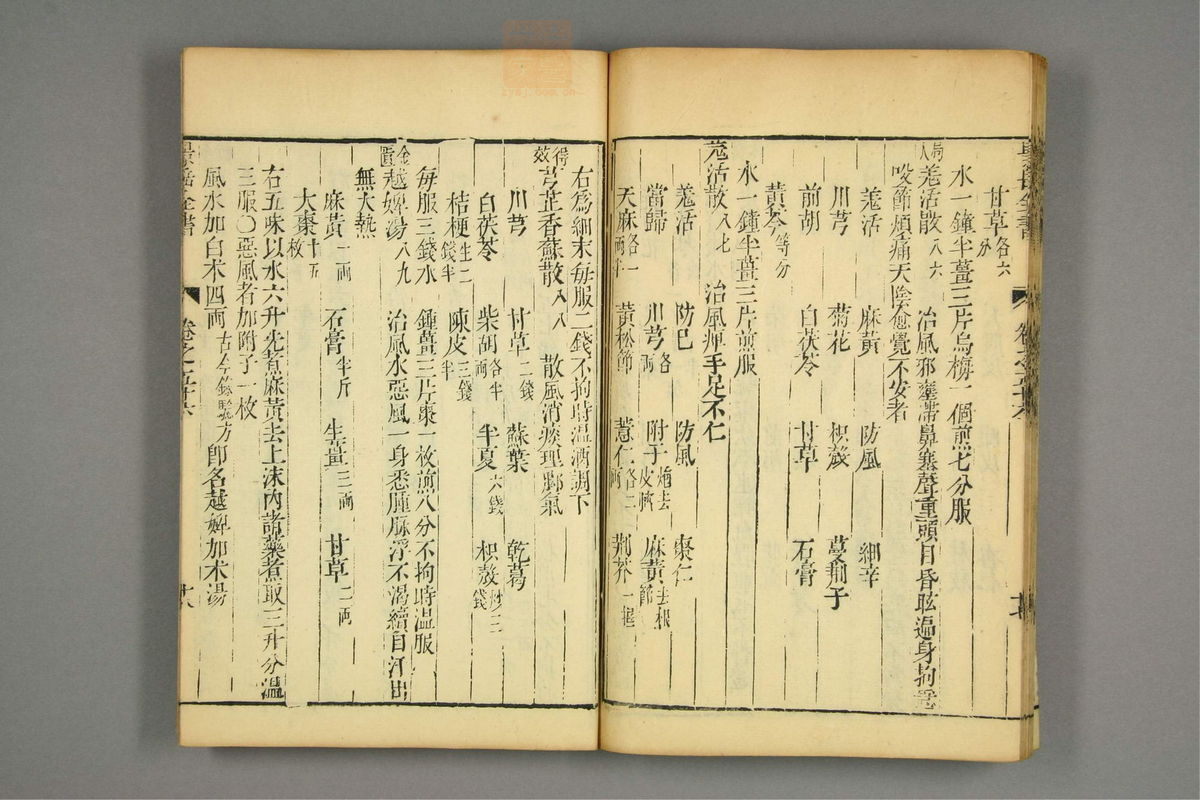 甘草各六分
水一鍾半薑三片烏梅一個煎七分服
局人羌活散八六　治風邪壅滯鼻塞聲重頭目昏眩遍身拘急
咬節煩痛天陰愈覺不安者
羌活　麻黃　防風　細辛
川芎　菊花　枳殼　蔓荆子
前胡　白茯苓　甘草　石膏
黃芩等分
水一鍾半薑三片煎服
羌活散八七　治風痺手足不仁
羌活　防巳　防風　棗仁
當歸　川芎各兩　附子炮去皮臍　麻黃去根節
天麻各一兩半　黃松節　薏仁各二兩　荆芥一握
右為細末每服二錢不拘時溫酒調下
得效芎芷香蘇散八八　散風消痰理鄹氣
川芎　甘草二錢　蘇葉　乾葛
白茯苓　柴胡各半兩　半夏六錢　枳殼炒三錢
桔梗生二錢半　陳皮三錢半
每服三錢水一鍾薑三片棗一枚煎八分不拘時溫服
金匱越婢湯八九　治風水惡風一身悉腫脈浮不渴續自汗出
無大熱
麻黃二兩　石膏半斤　生薑三兩　甘草二兩
大棗十五枚
右五味以水六升先煮麻黃去上沫內諸藥煮取三升分溫
三服〇惡風者加附子一枚
風水加白术四兩　古今錄驗方即名越婢加术湯
景岳全書　卷之五十六　廿八